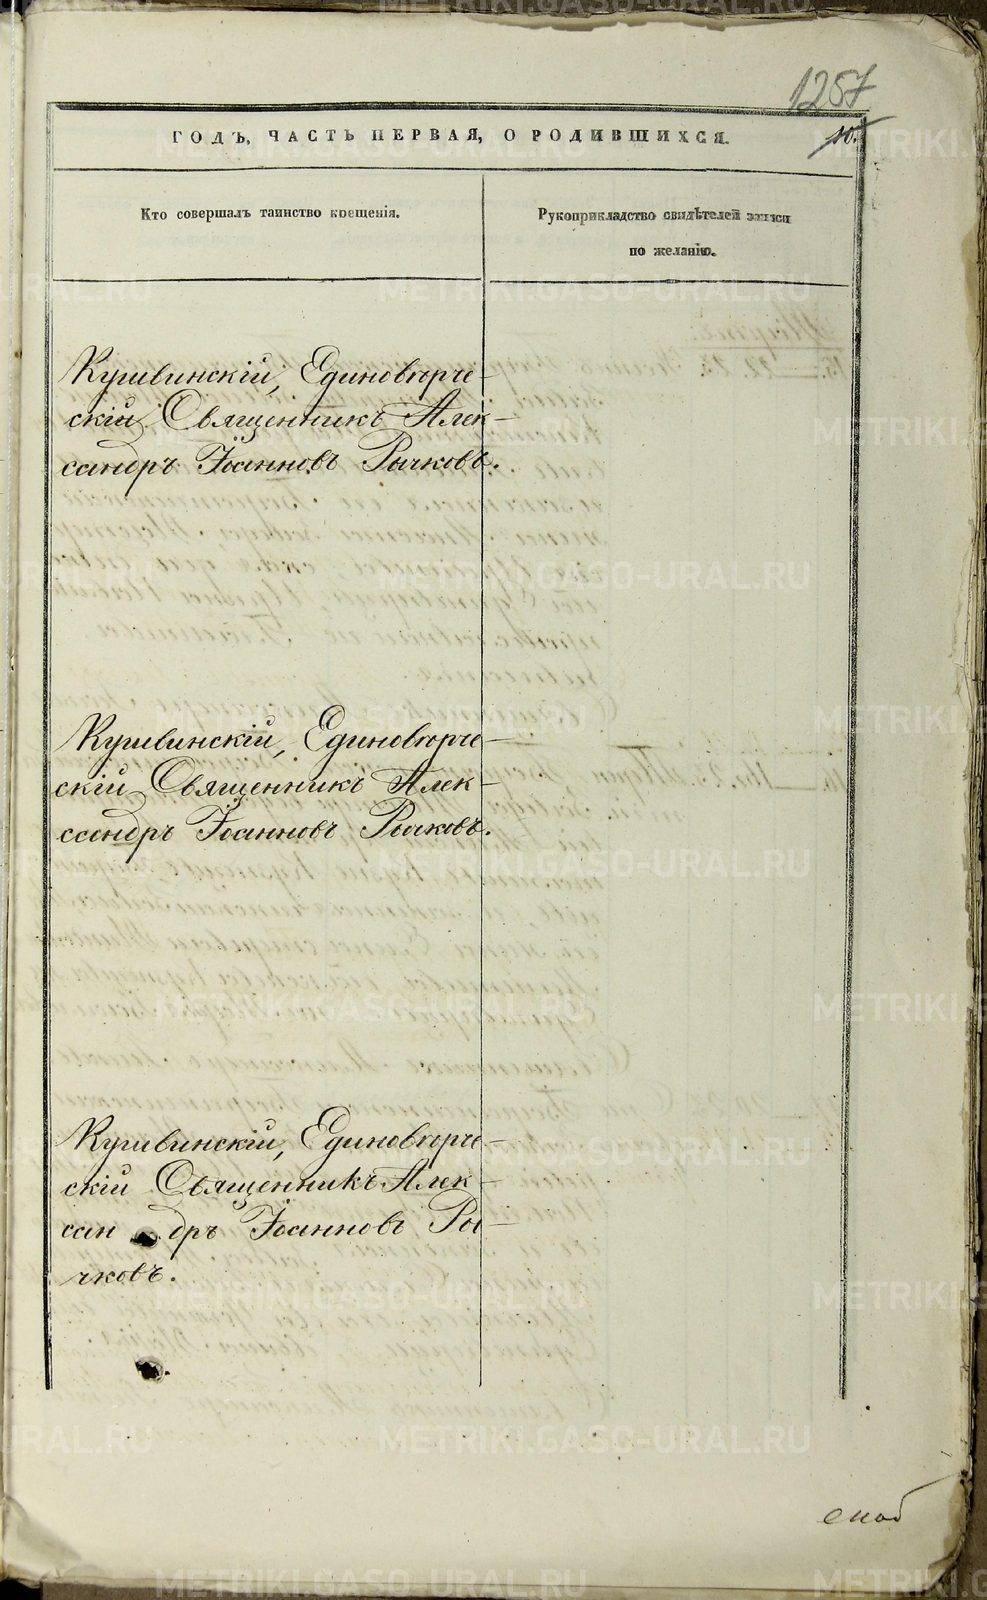 1257
ГОДЪ, ЧАСТЬ ПЕРВАЯ, О РОДИВШИХСЯ.
10.
Кто совершалъ таинство крещенія.
Рукоприкладство свидѣтелей записи
по желанію.
Кушвинскій, Единовѣрче-
скій Священникъ Алек-
сандръ Іоанновъ Рычковъ.
Кушвинскій, Единовѣрче-
скій Священникъ Алек-
сандръ Іоанновъ Рычковъ.
Кушвинскій, Единовѣрче-
скій Священникъ Алек-
сан дръ Іоанновъ Ры-
чковъ.
METRIKI.GASO-URAL.RU